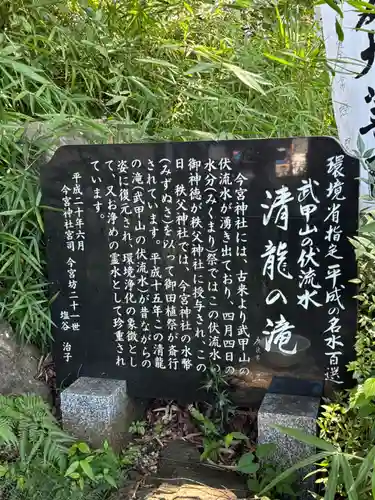 環境省指定 平成の名水百選
武甲山の伏流水
清龍の滝
今宮神社には、古来より武甲山の
伏流水が湧き出ており、四月四日の
水分(みくまり)祭ではこの伏流水の
御神徳が秩父神社に授与され、この
日、秩父神社では、今宮神社の水幣
(みずぬさ)を以って御田植祭が斎行
されています。平成十五年この清龍
の滝(武甲山の伏流水)が昔ながらの
姿に復元され、環境浄化の象徴とし
て、又お浄めの霊水として珍重され
ています。
平成二十年六月
今宮神社宮司 今宮坊二十一世
塩谷 治子